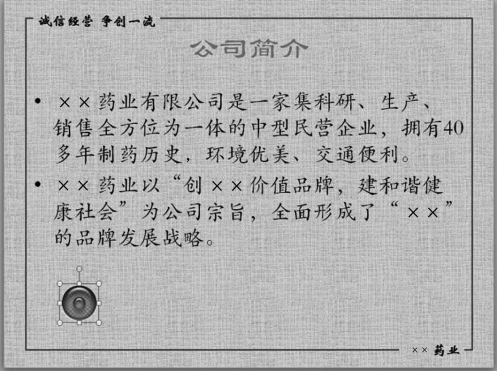 诚信经营 争创一流
公司简介
• ××药业有限公司是一家集科研、生产、
销售全方位为一体的中型民营企业，拥有40
多年制药历史，环境优美、交通便利。
• ××药业以“创××价值品牌，建和谐健
康社会”为公司宗旨，全面形成了“××”
的品牌发展战略。
××药业